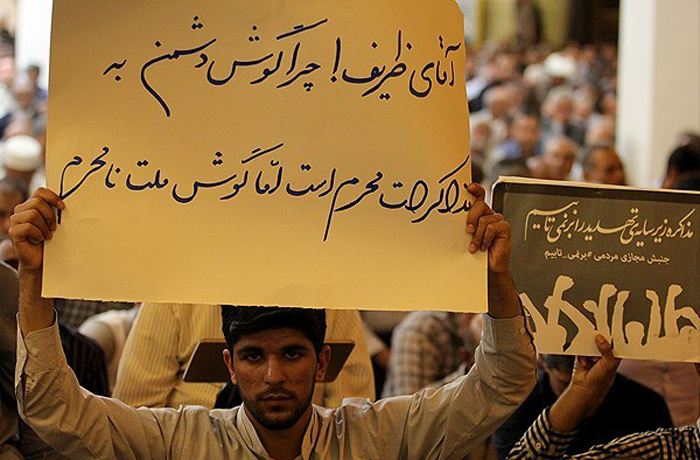 آقای ظریف! چرا گوش دشمن به
مذاکرات محرم است اما گوش ملت نامحرم
مذاکره زیر سایه‌ی تهدید را برنمی‌تابیم
جنبش مجازی مردمی #برنمی_تابیم